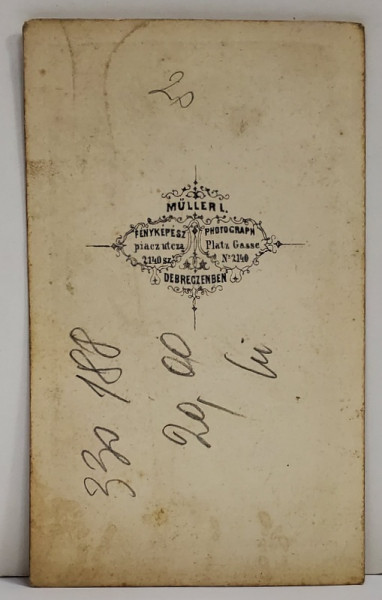 20
MÜLLER L.
FÉNYKÉPÉSZ PHOTOGRAPH
piacz utcza Platz Gasse
2140 sz. No 2140
DEBRECZENBEN
330 188
29